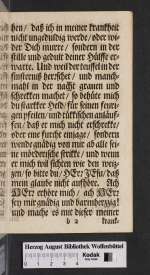 ben / daß ich in meiner kranckheit
nicht ungedüldig werde / oder wi-
der Dich murre / sondern in der
stille und gedult deiner Hülffe er-
warte. Und weil der teuffel in der
finsterniß herrschet / und manch-
mahl in der nacht grauen und
schrecken machet / so behüte mich
du starcker Held / für seinen feuri-
gen pfeilen / und tückischen anläuf-
fen / daß er mich nicht erschrecke /
oder mir furcht einjage / sondern
wende gnädig von mir ab alle sei-
ne mörderische stricke / und wenn
er mich wil sichten wie den weit-
zen / so bitte du / HErr JEsu / daß
mein glaube nicht auffhöre. Ach
HErr erhöre mich / ach HErr
sey mir gnädig und barmhertzig!
und mache es mit dieser meiner
b 2 kranck-
Herzog August Bibliothek Wolfenbüttel
Kodak